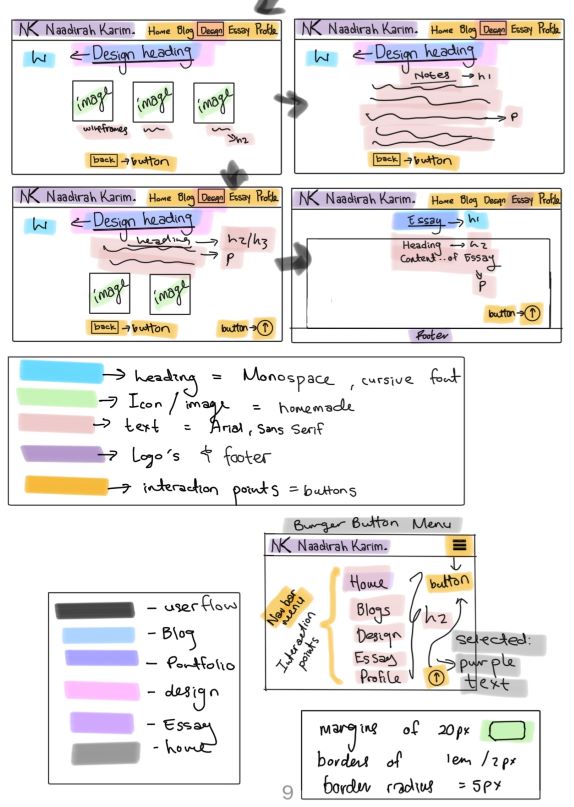 NK Naadirah Karim. Home Blog Design Essay Profile
h1 ← Design heading
image image image
wireframes
→ h2
back → button
NK Naadirah Karim. Home Blog Design Essay Profile
h1 ← Design heading
Notes → h1
→ P
back → button
NK Naadirah Karim. Home Blog Design Essay Profile
h1 ← Design heading
heading → h2/h3
→ P
image image
back → button
button → ↑
NK Naadirah Karim. Home Blog Design Essay Profile
Essay → h1
Heading → h2
Content.. of Essay
P
button → ↑
footer
→ heading = Monospace, cursive font
→ Icon / image = homemade
→ text = Arial, Sans Serif
→ Logo's & footer
→ interaction points = buttons
Burger Button Menu
NK Naadirah Karim.
Navbar menu
Interaction points
Home
Blogs
Design
Essay
Profile
h2
button
↑
selected:
purple
text
- userflow
- Blog
- Portfolio
- design
- Essay
- home
margins of 20px
borders of 1em /2px
border radius = 5px
9